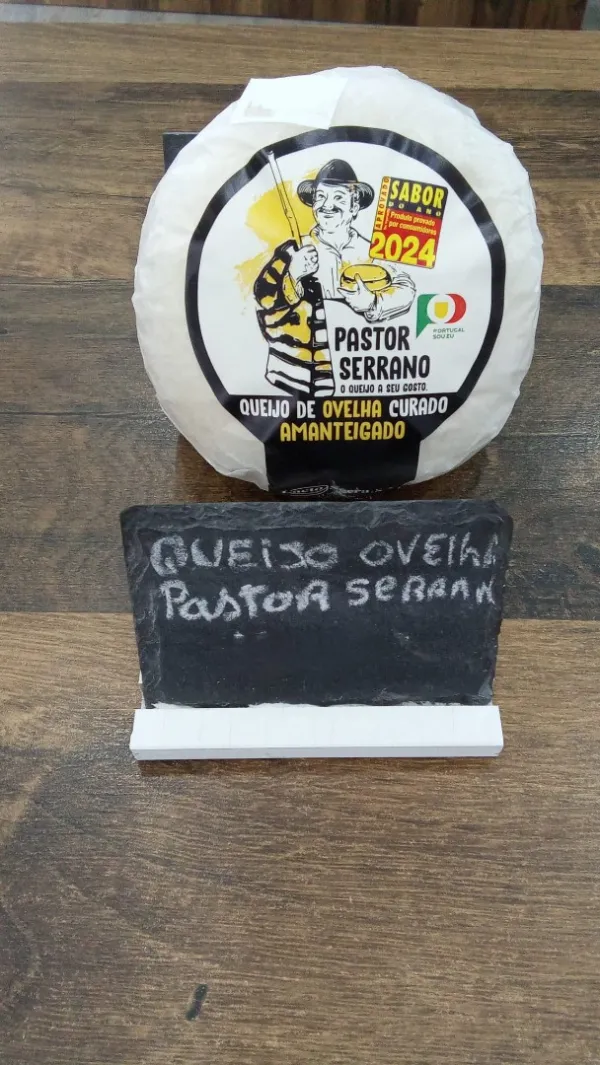 APROVADO
SABOR
DO ANO
Produto provado
por consumidores
2024
PORTUGAL
SOU EU
PASTOR
SERRANO
O QUEIJO A SEU GOSTO.
QUEIJO DE OVELHA CURADO
AMANTEIGADO
QUEIJO OVElhA
PastoR SeRRAN